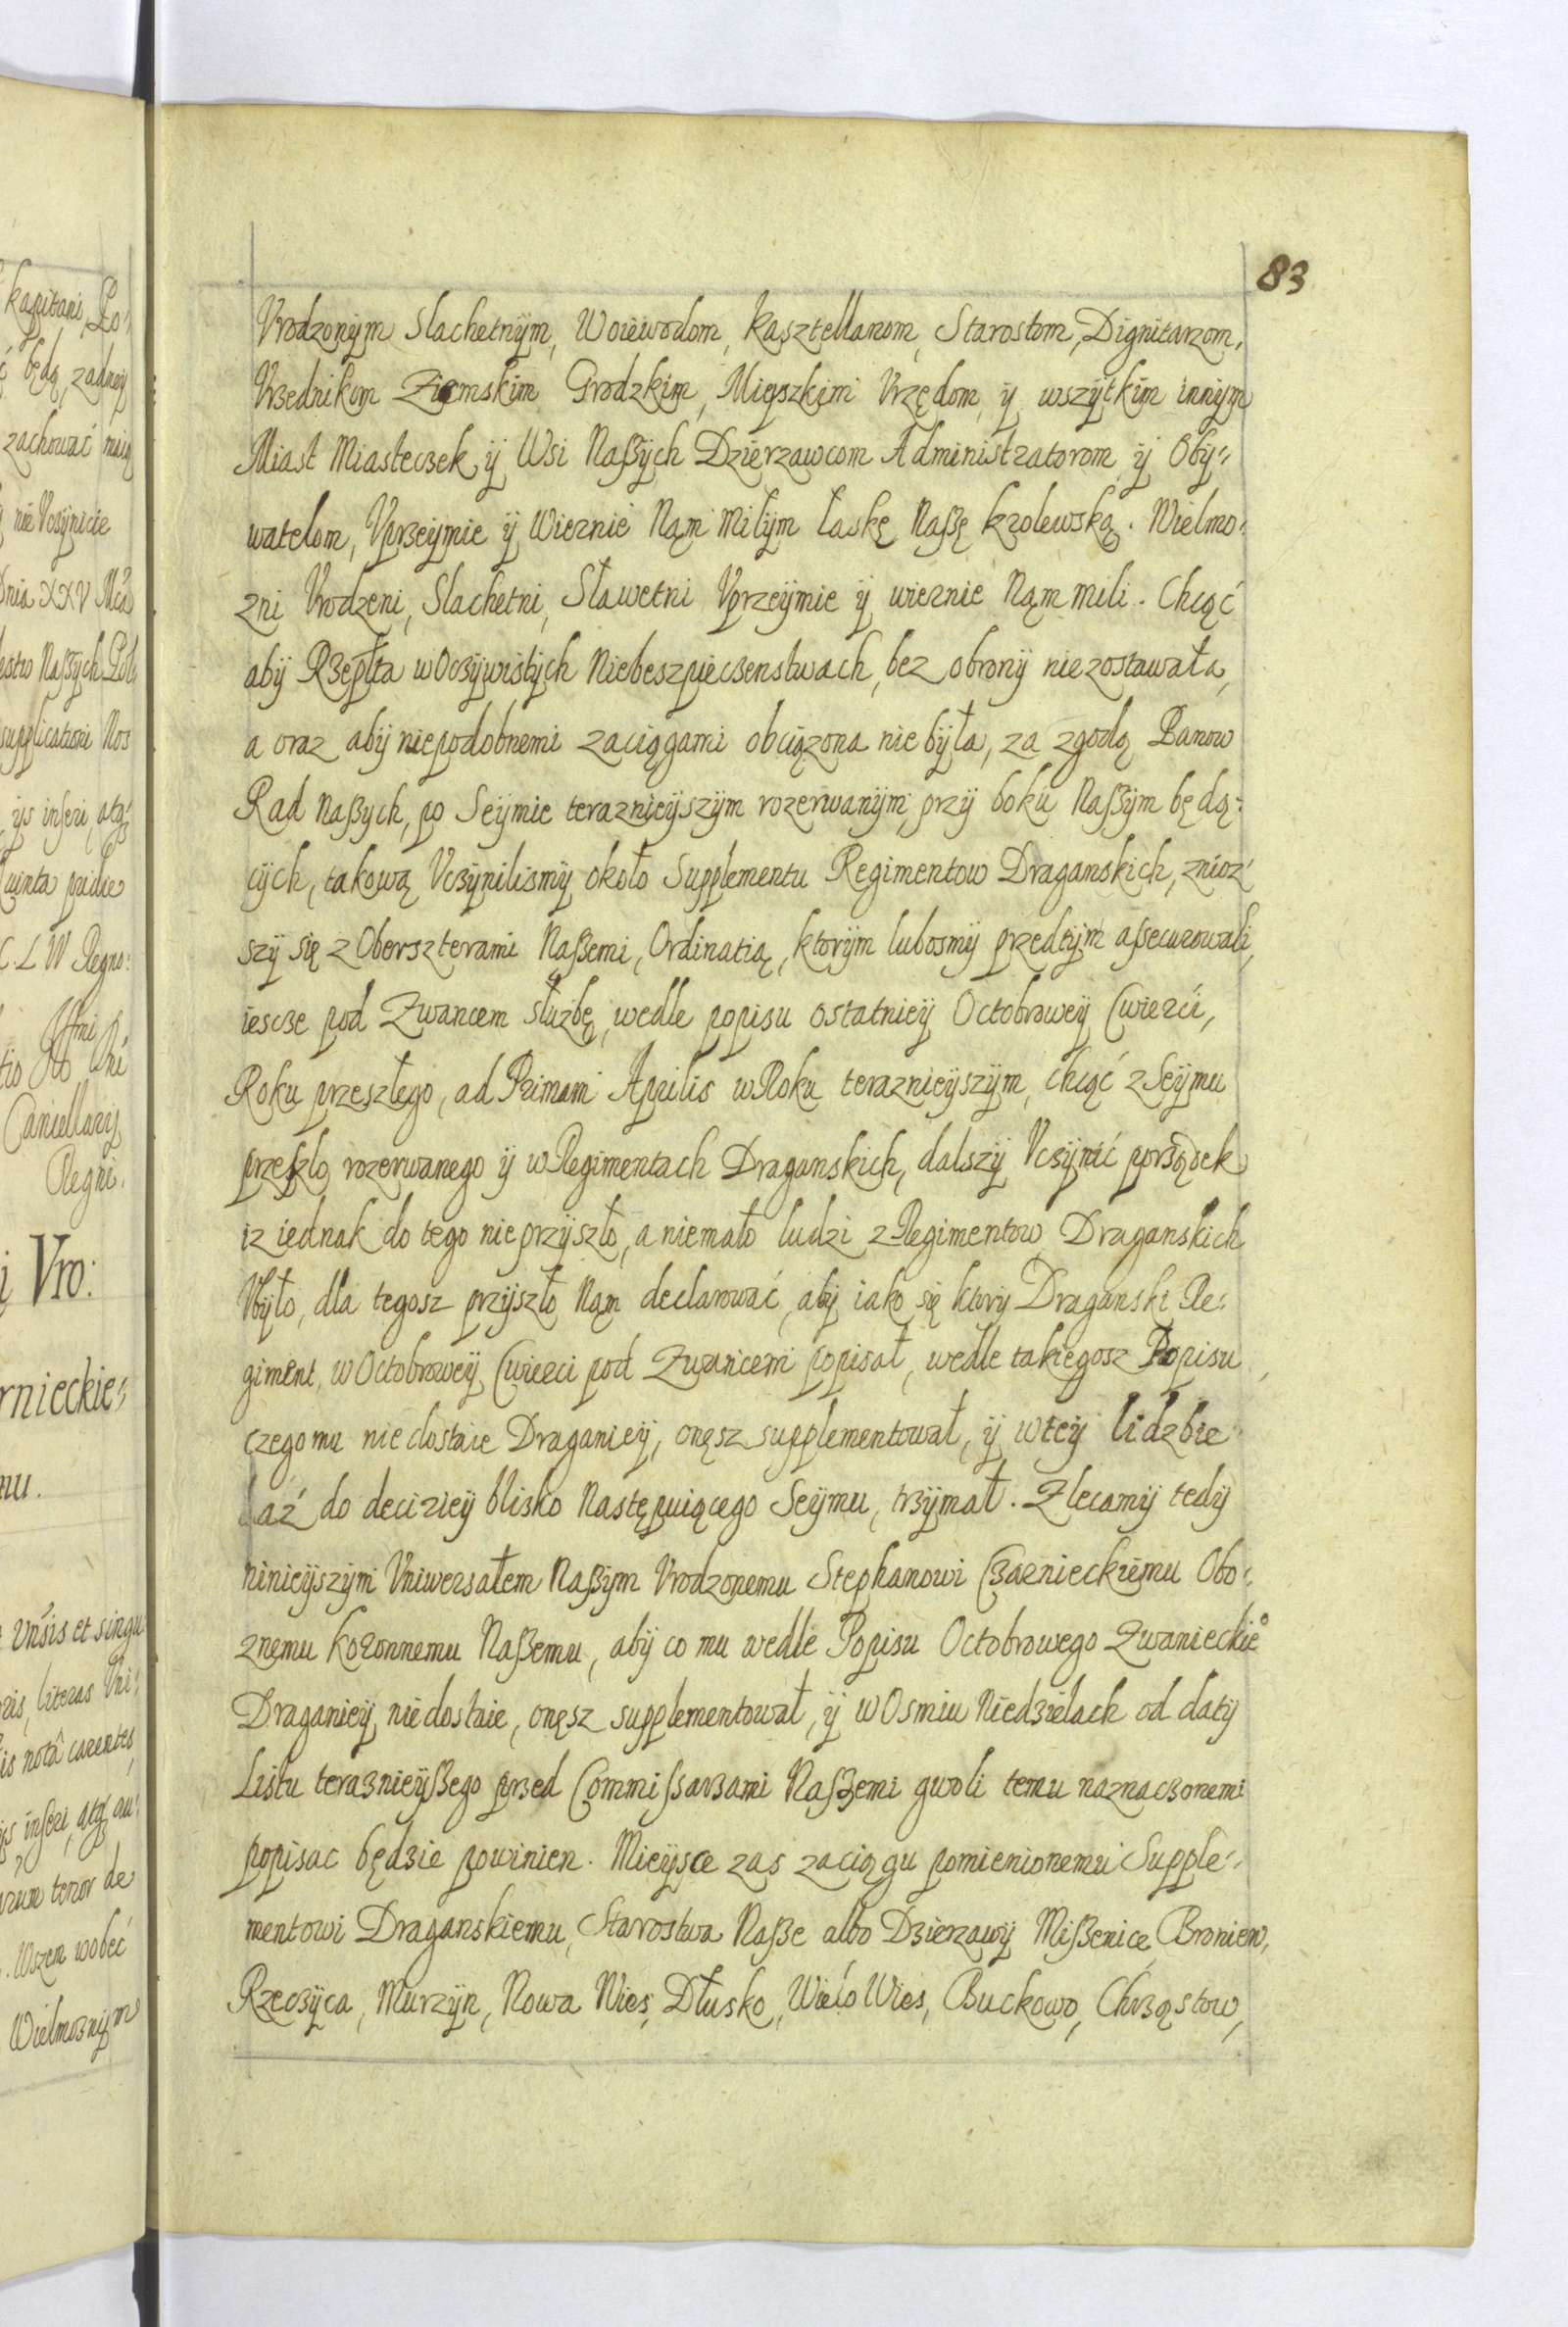 83
Vrodzonÿm Slachetnÿm, Woiewodom, Kasztellanom, Starostom, Dignitarzom,
Vrzednikom Ziemskim Grodzkim, Mieyszkim Vrzędom ÿ wszytkim innÿm
Miast Miasteczek ÿ Wsi Naßÿch Dzierzawcom Administratorom ÿ Obÿ-
watelom, Vprzeÿmie ÿ Wiernie Nąm Miłÿm łaskę Naßę krolewską. Wielmo-
zni Vrodzeni, Slachetni, Sławetni Vprzeÿmie ÿ wiernie Nąm mili. Chcąć
abÿ Rzepłta w Oczÿwistÿch Niebeszpieczenstwach, bez obronÿ niezostawała,
a oraz abÿ niepodobnemi zaciągami obciązona nie bÿła, za zgodą Panow
Rad Naßych, po Seÿmie teraznieÿszÿm rozerwanÿm, przÿ boku Naßÿm będą-
cÿch, takową Vczÿnilismÿ około Supplementu Regimentow Draganskich, znioz-
szÿ się z Oberszterami Naßemi, Ordinatią, ktorÿm lubosmÿ przedtÿm aßecurowali,
iescze pod Zwancem służbę, wedle popisu ostatnieÿ Octobroweÿ Cwierci,
Roku przeszłego, ad Primam Aprilis w Roku teraznieÿszÿm, chcąć z Seÿmu
przeßło rozerwanego ÿ w Regimentach Draganskich, dalszÿ Vczÿnić porządek
iz iednak do tego nie przÿszło, a niemało ludzi z Regimentow Draganskich
Vbÿło, dla tegosz przÿszło Nąm declarować, abÿ iako się ktorÿ Draganski Re-
giment, w Octobroweÿ Cwierci pod Zwancem popisał, wedle takiegosz Popisu,
czego mu nie dostaie Draganieÿ, onęsz supplementował, ÿ w teÿ lidzbie
aż do decizieÿ blisko Następuiącego Seÿmu, trzÿmał. Zlecamÿ tedÿ
ninieÿszÿm Vniwersałem Naßÿm Vrodzonemu Stephanowi Czarnieckiemu Obo-
znemu koronnemu Naßemu, abÿ co mu wedle Popisu Octobrowego Zwanieckie°
Draganieÿ niedostaie, onęsz supplementował, ÿ w Osmiu Niedzielach od datÿ
Listu terazniejßego przed Commissarzami Naßzemi gwoli temu naznaczonemi
popisac będzie powinien. Mieÿsce zas zaciągu pomienionemu Supple-
mentowi Draganskiemu, Starostwa Naße albo Dzierzawÿ Mißenice, Broniew,
Rzeczÿca, Murzÿn, Nowa Wies, Dłusko, Wielo Wies, Buckowo, Chrząstow,